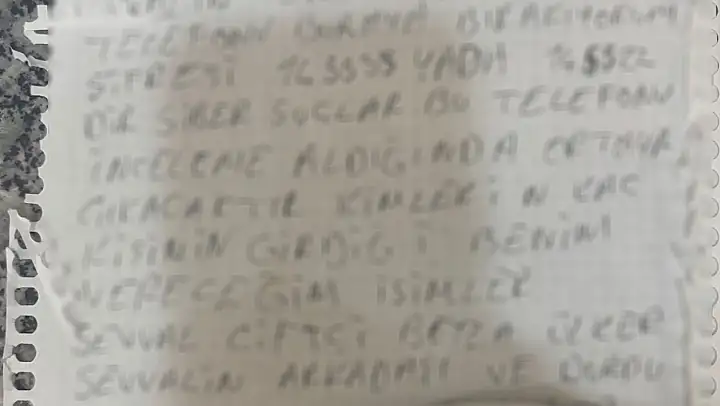 TELEFONU BURAYA BIRAKIYORUM
ŞİFRESİ YADA
BİR SİBER SUÇLAR BU TELEFONU
İNCELEME ALDIĞINDA ORTAYA
ÇIKACAKTIR KİMLERİN KAÇ
KİŞİNİN GİRDİĞİ BENİM
VERECEĞİM İSİMLER
ŞEVVAL ÇİFTÇİ İLKER
ŞEVVALİN ARKADAŞI VE